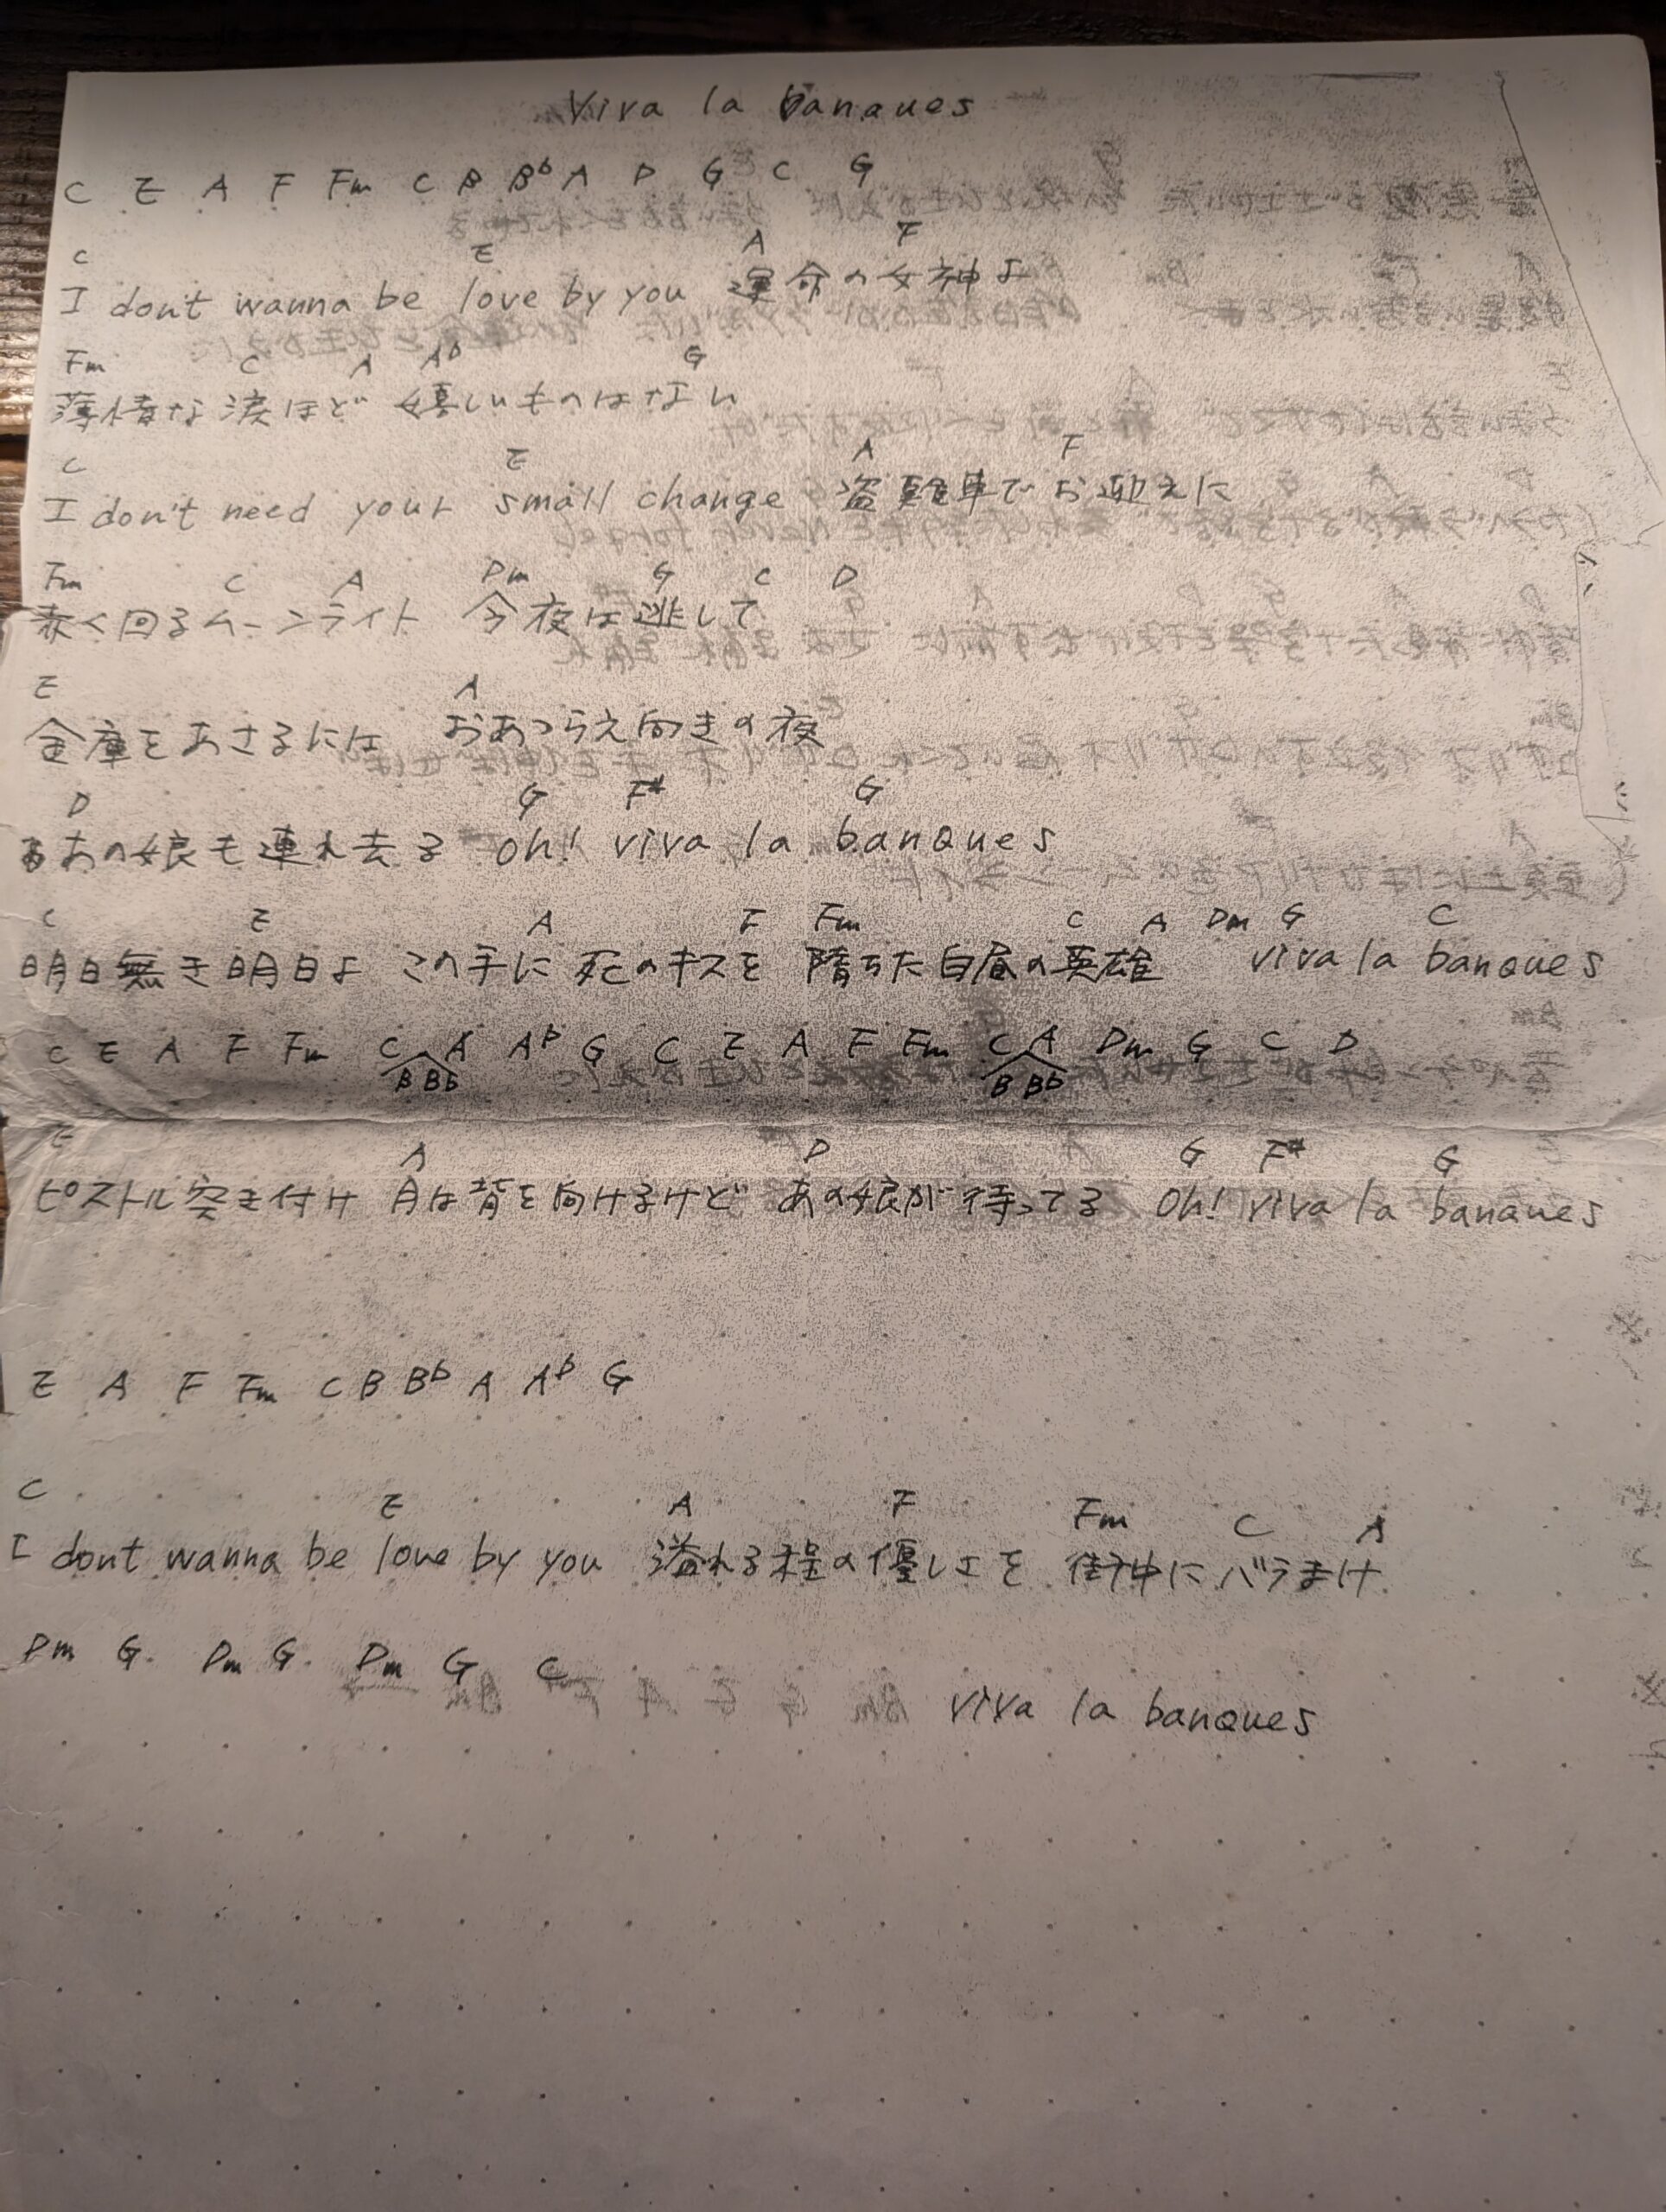 Viva la banques
C E A F Fm C B B♭ A D G C G
C E A F
I dont wanna be love by you 運命の女神よ
Fm C A A♭ G
薄情な涙ほど嬉しいものはない
C E A F
I don't need your small change 盗難車でお迎えに
Fm C A Dm G C D
赤く回るムーンライト 今夜は逃して
E A
金庫をあさるには おあつらえ向きの夜
D G F# G
あの娘も連れ去る oh! viva la banques
C E A F Fm C A Dm G C
明日無き明日よ この手に死のキスを 堕ちた白昼の英雄 viva la banques
C E A F Fm C A A♭ G C E A F Fm C A Dm G C D
B Bb B Bb
E A D G F# G
ピストル突き付け 月は背を向けるけど あの娘が待ってる Oh! viva la banques
E A F Fm C B B♭ A A♭ G
C E A F Fm C A
I dont wanna be love by you 溢れる程の優しさを 街中にバラまけ
Dm G Dm G Dm G C
viva la banques